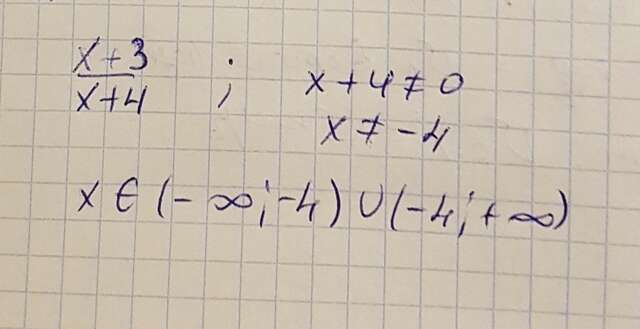 x+3
x+4 ; x+4≠0
x≠-4
x∈(-∞;-4)∪(-4;+∞)